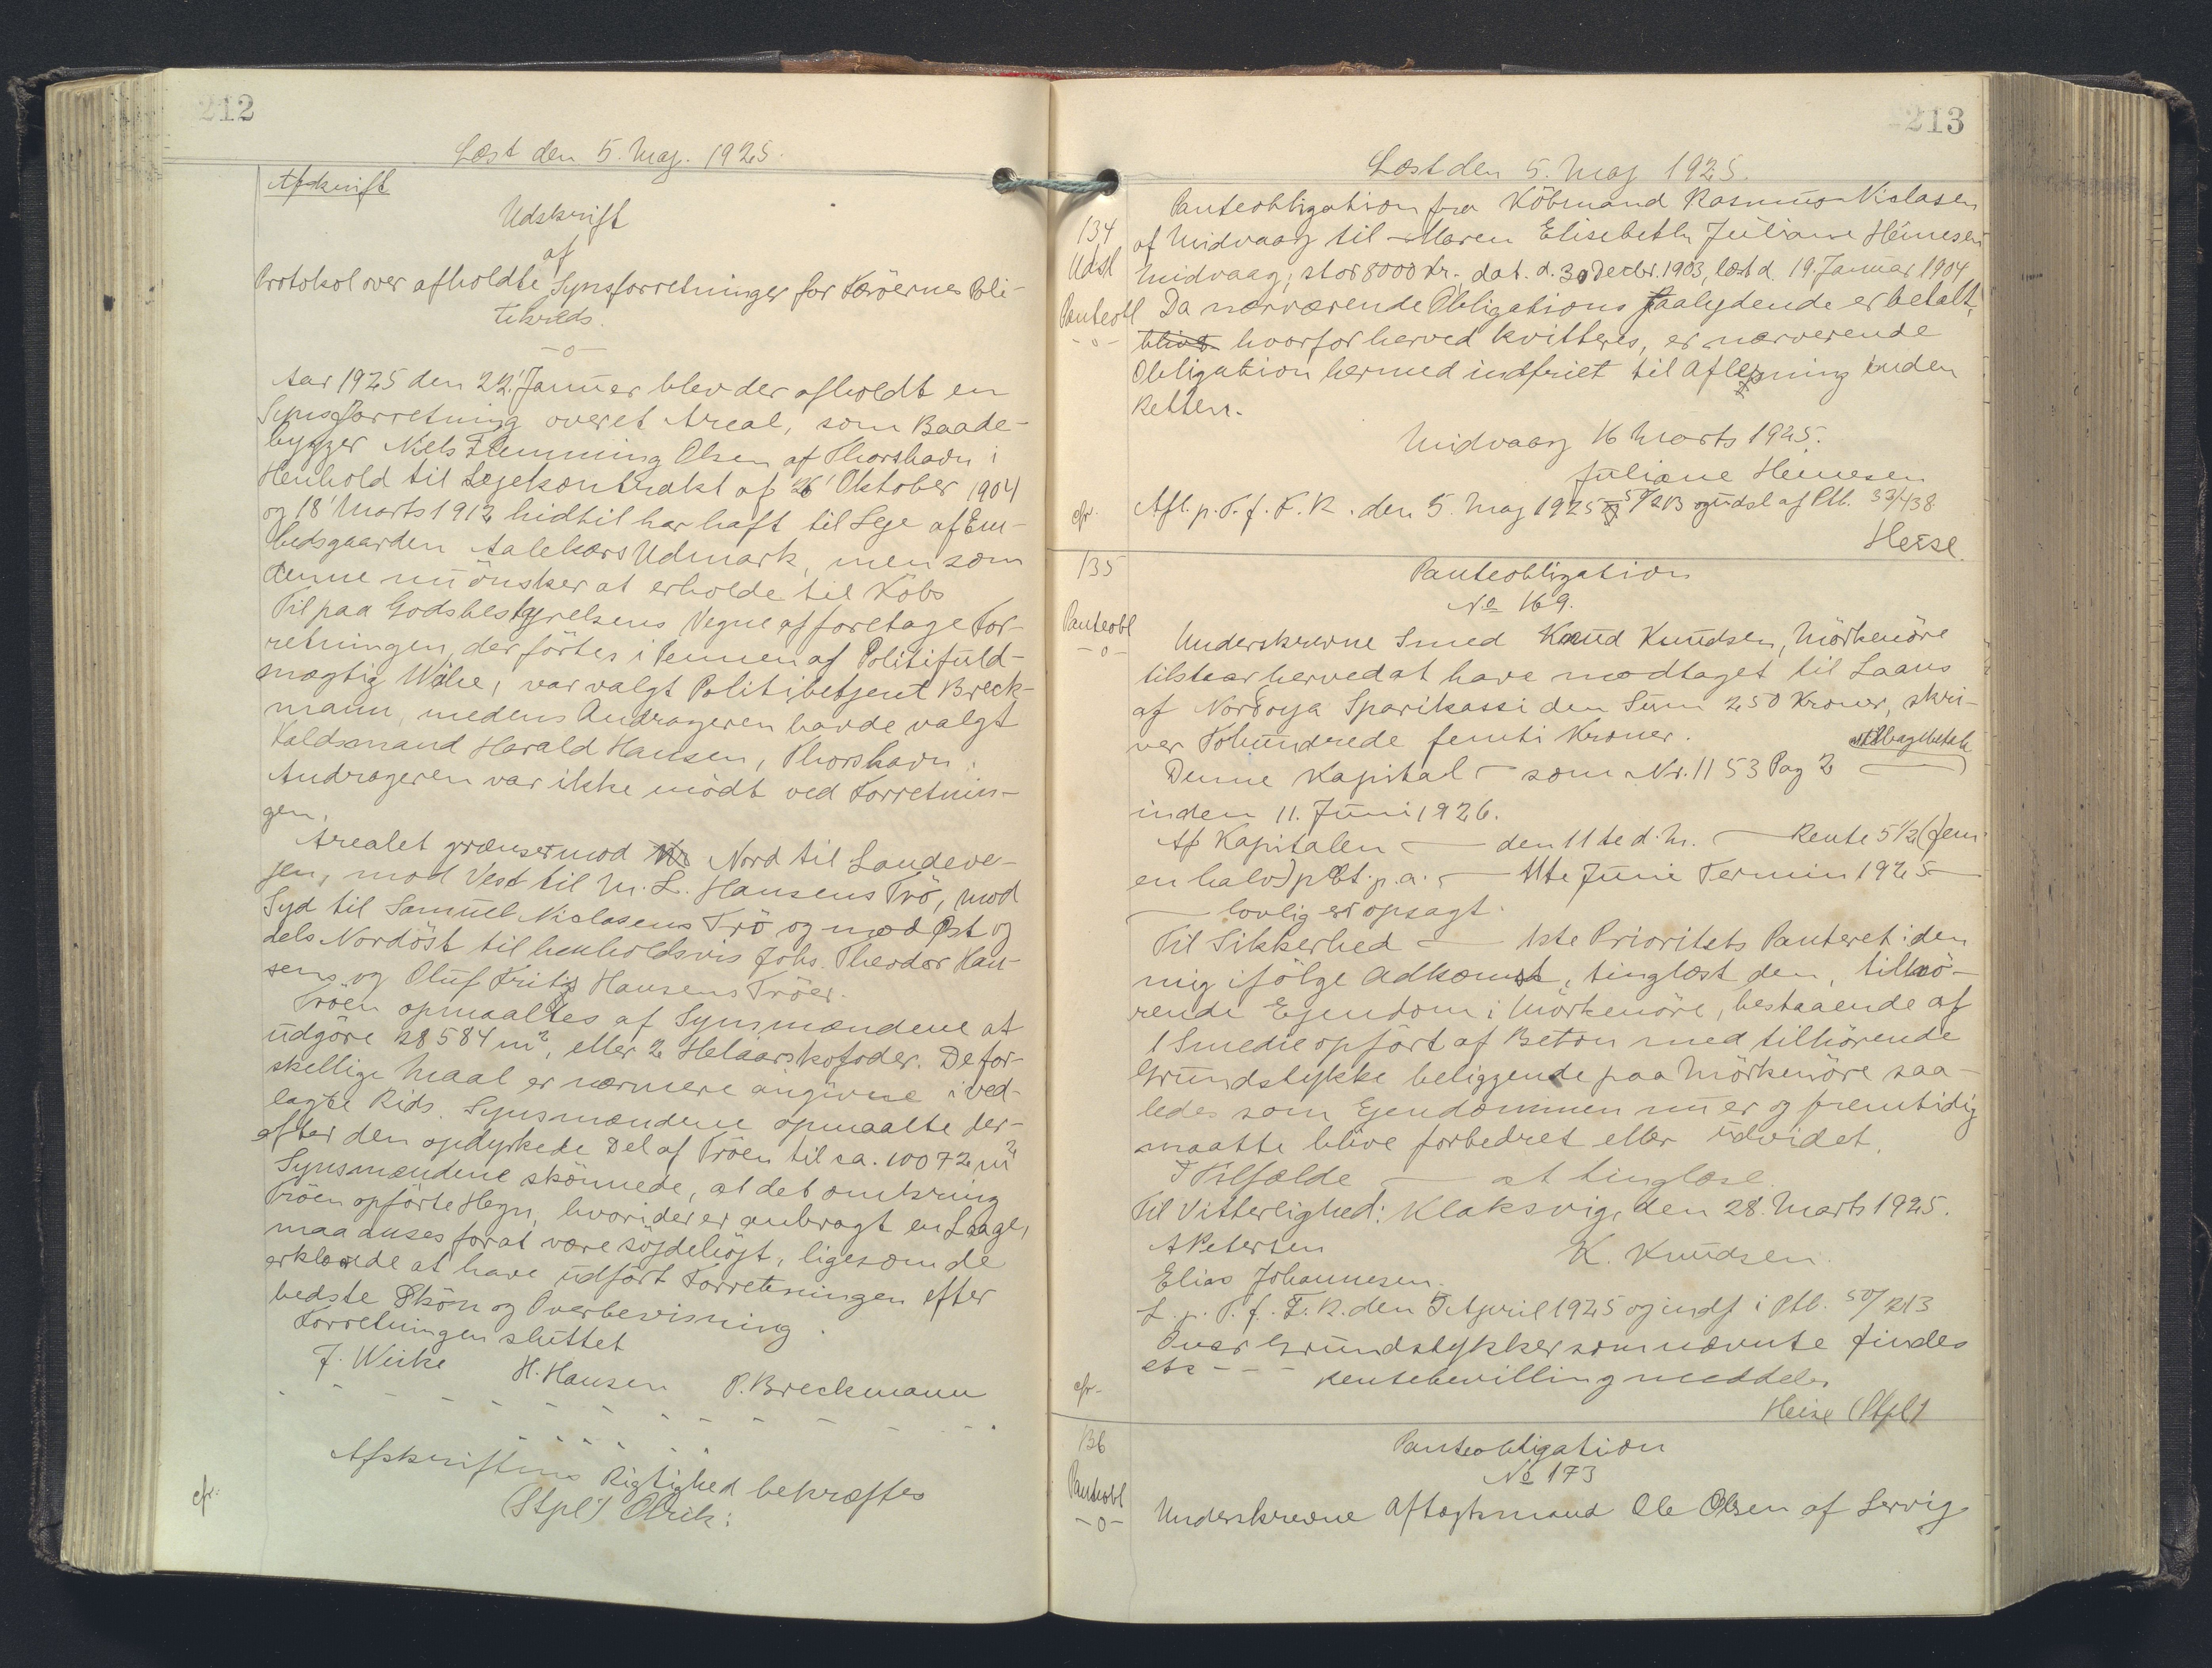 212
Læst den 5. Maj. 1925.
Afskrift
Udskrift
af
Protokol over afholdte Synsforretninger for Færöernes Poli-
tikreds.
-o-
Aar 1925 den 22' Januar blev der afholdt en
Synsforretning over et Areal, som Baade-
bygger Niels Flemming Olsen af Thorshavn i
Henhold til Lejekontrakt af 26' Oktober 1904
og 18' Marts 1912 hidtil har haft til Leje af Em-
bedsgaarden Aalekærs Udmark, men som
denne nu önsker at erholde til Köbs
Til paa Godsbestyrelsens Vegne at foretage For-
retningen, der förtes i Pennen af Politifuld-
mægtig Wiihe, var valgt Politibetjent Breck-
mann, medens Andrageren havde valgt
Koldsmand Harald Hansen, Thorshavn.
Andrageren var ikke mödt ved Forretnin-
gen.
Arealet grænser mod Nord til Landeve-
jen, mod Vest til M. L. Hansens Trö, mod
Syd til Samuel Niclasens Trö og mod Öst og
dels Nordöst til henholdsvis Johs. Theodor Han-
sens og Oluf Fritz Hansens Tröer.
Tröen opmaaltes af Synsmændene at
udgöre 28584 m², eller 2 Helaarskofoder. De for-
skellige Maal er nærmere angivne i ved-
lagte Rids. Synsmændene opmaalte der-
efter den opdyrkede Del af Tröen til ca. 10072 m²
Synsmændene skönnede, at det omkring
Tröen opförte Hegn, hvori der er anbragt en Laage,
maa anses for at være söjdehöjt, ligesom de
erklærede at have udfört Forretningen efter
bedste Skön og Overbevisning.
Forretningen sluttet
J. Wiihe H. Hansen P. Breckmann
Afskriftens Rigtighed bekræftes
(Stpl) Olrik:
cfr:
213
Læst den 5. Maj 1925.
134
Udsl
Panteobl
-o-
Panteobligation fra Köbmand Rasmus Niclasen
af Midvaag til Maren Elisebeth Juliane Heinesen
Midvaag, stor 8000 Kr. dat. d. 30 Decbr. 1903, læst d. 19. Januar 1904
Da nærværende Obligations Paalydende er betalt,
blive hvorfor herved kvitteres, er nærværende
Obligation hermed indfriet til Aflæsning inden
Retten.
Midvaag 16 Marts 1925.
Juliane Heinesen
cfr. Afl. p. T. f. F. R. den 5. Maj 1925 50/213 og udsl af Ptb. 33/438
Heise.
135
Panteobl
-o-
Panteobligation
No 169.
Underskrevne Smed Knud Knudsen, Mörkenöre
tilstaar herved at have modtaget til Laans
af Norðoya Sparikassi den Sum 250 Kroner, skri-
ver Tohundrede femti Kroner.
Denne Kapital - som Nr. 1153 Pag 2 - tilbagebetale
inden 11. Juni 1926.
Af Kapitalen - den 11te d. M. - Rente 5 1/2 (fem
en halv) pCt. p. a. - 11te Juni Termin 1925 -
- lovlig er opsagt.
Til Sikkerhed - 1ste Prioritets Panteret i den
mig ifölge Adkomst, tinglæst den, tilhö-
rende Ejendom i Mörkenöre, bestaaende af
1 Smedie opfört af Beton med tilhörende
Grundstykke beliggende paa Mörkenöre saa-
ledes som Ejendommen nu er og fremtidig
maatte blive forbedret eller udvidet.
I Tilfælde - at tinglæse.
Til Vitterlighed: Klaksvig, den 28. Marts 1925.
A Petersen K. Knudsen.
Elias Johannesen.
L. p. T. f. F. R. den 5 April 1925 og indf i Ptb. 50/213
Over Grundstykker som nævnte findes
etc - - - Rentebevilling meddeles
cfr. Heise (Stpl)
136
Panteobl
-o-
Panteobligation
No 173
Underskrevne Aftægtsmand Ole Olsen af Servig